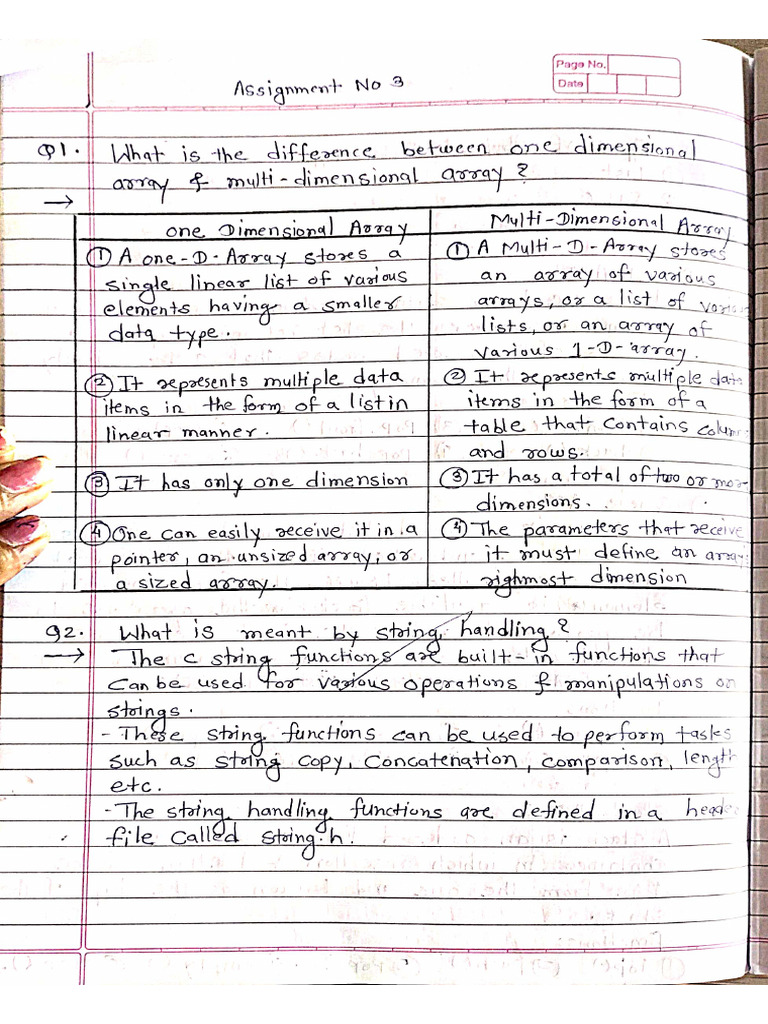 Page No.
Date
Assignment No 3
Q1. What is the difference between one dimensional
array & multi-dimensional array?
→
one Dimensional Array
① A one-D-Array stores a
single linear list of various
elements having a smaller
data type.
② It represents multiple data
items in the form of a list in
linear manner.
③ It has only one dimension
④ One can easily receive it in a
pointer, an unsized array, or
a sized array.
Multi-Dimensional Array
① A Multi-D-Array stores
an array of various
arrays, or a list of various
lists, or an array of
various 1-D-array.
② It represents multiple data
items in the form of a
table that contains colum
and rows.
③ It has a total of two or more
dimensions.
④ The parameters that receive
it must define an array
righmost dimension
Q2. What is meant by string handling?
→ The C string functions are built-in functions that
can be used for various operations & manipulations on
strings.
- These string functions can be used to perform tasks
such as string copy, concatenation, comparison, length
etc.
- The string handling functions are defined in a header
file called string.h.